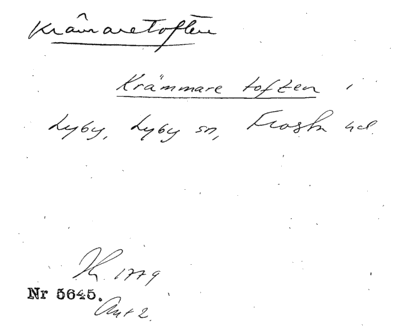 Krämaretoften
Krämmare toften i
Lyby, Lyby sn, Frosta hd.
1779
Nr 5645.
Akt 2.